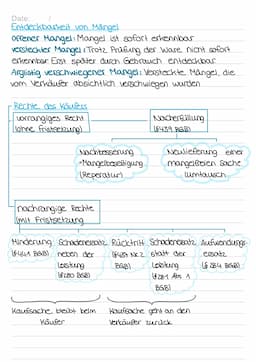 Date: /
Entdeckbarkeit von Mängel
offener Mangel: Mangel ist sofort erkennbar
versteckter Mangel: Trotz Prüfung der Ware nicht sofort
erkennbar. Erst später durch Gebrauch entdeckbar
Arglistig verschwiegener Mangel: Versteckte Mängel, die
vom Verkäufer absichtlich verschwiegen wurden
Rechte des Käufers
vorrangiges Recht
(ohne Fristsetzung)
Nacherfüllung
(§439 BGB)
Nachbesserung
=Mangelbeseitigung
(Reperatur)
Neulieferung einer
mangelfreien Sache
Umtausch
nachrangige Rechte
(mit Fristsetzung)
Minderung
(§441 BGB)
Schadensersatz
neben der
Leistung
(§280 BGB)
Rücktritt
(§437 Nr.2
BGB)
Schadensersatz
statt der
Leistung
(§281 Abs. 1
BGB)
Aufwendungs-
ersatz
(§284 BGB)
Kaufsache bleibt beim
Käufer
Kaufsache geht an den
Verkäufer zurück